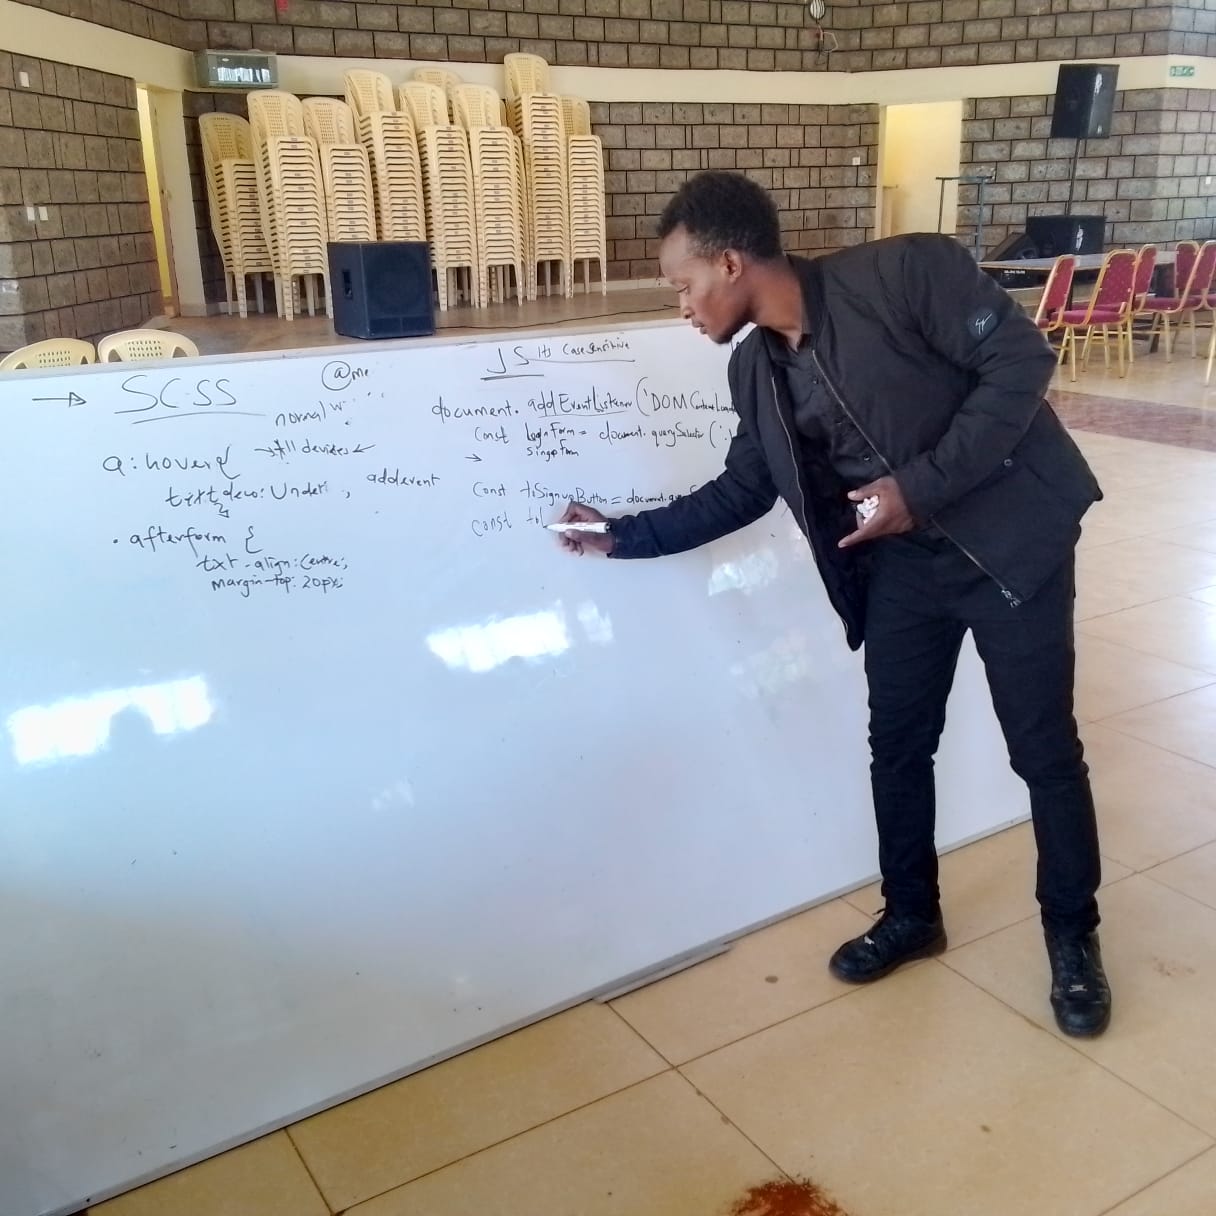 SCSS
@me
normal w
All devices
a:hover{
text deco: Under ;
addevent
.afterform {
txt-align: Centre;
margin-top: 20px;
JS Its Case Sensitive
document. addEventListener ('DOM Content Loaded
Const LoginForm = document. querySelector ('.
SingupForm
Const toSignupButton = document. que
const toL